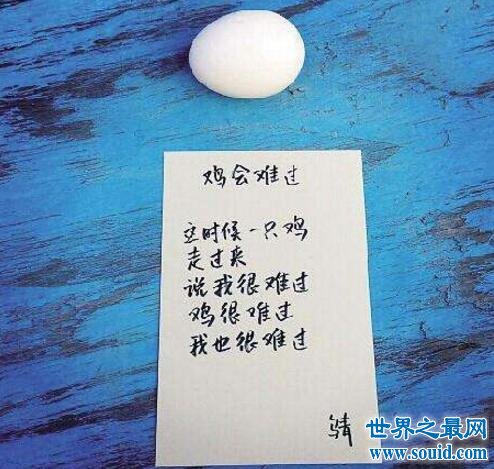 鸡会难过
这时候一只鸡
走过来
说我很难过
鸡很难过
我也很难过
骑
世界之最网
www.souid.com